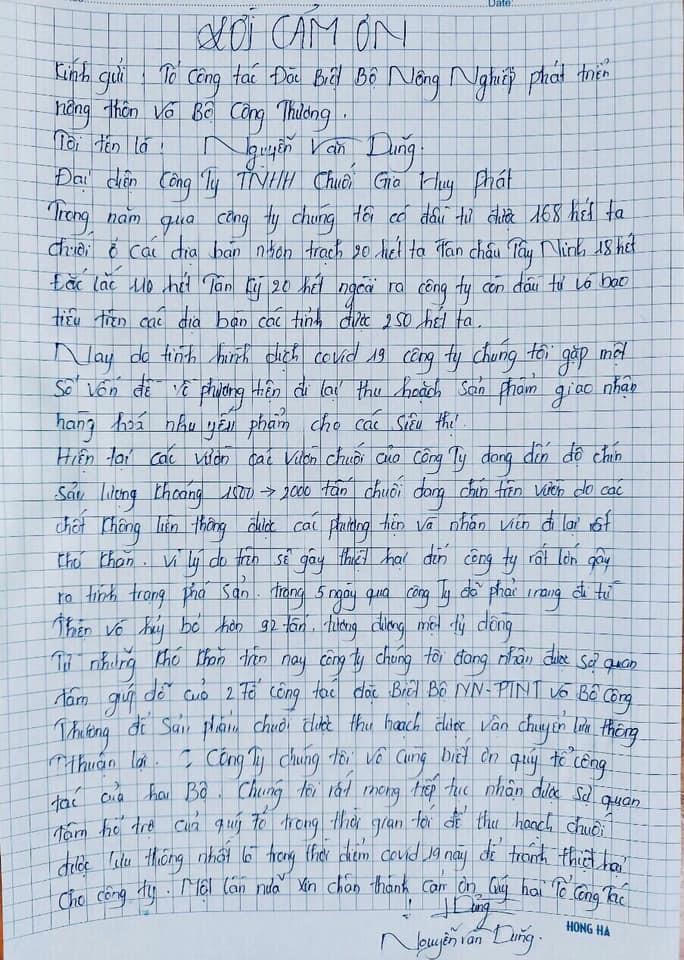 Date:
LỜI CẢM ƠN
Kính gửi : Tổ Công tác Đặc Biệt Bộ Nông Nghiệp phát triển
nông thôn và Bộ Công Thương.
Tôi tên là : Nguyễn Văn Dũng.
Đại diện Công Ty TNHH Chuối Gia Huy Phát
Trong năm qua công ty chúng tôi có đầu tư được 168 hết ta
chuối ở các địa bàn nhơn trạch 20 hết ta Tân châu Tây Ninh 18 hết
Đắc lắc 110 hết Tân Kỳ 20 hết ngoài ra công ty còn đầu tư và bao
tiêu trên các địa bàn các tỉnh được 250 hết ta.
Nay do tình hình dịch covid 19 công ty chúng tôi gặp một
số vấn đề về phương tiện đi lại thu hoạch sản phẩm giao nhận
hàng hoá nhu yếu phẩm cho các siêu thị.
Hiện tại các vườn các vườn chuối của công Ty đang đến độ chín
sản lượng khoảng 1500 → 2000 tấn chuối đang chín trên vườn do các
chốt không liên thông được các phương tiện và nhân viên đi lại rất
khó khăn. vì lý do trên sẽ gây thiệt hại đến công ty rất lớn gây
ra tình trạng phá sản. trong 5 ngày qua công Ty đã phải mang đi từ
Thiện và hủy bỏ hơn 92 tấn. tương đương một tỷ đồng
Từ những khó khăn trên nay công ty chúng tôi đang nhận được sự quan
tâm giúp đỡ của 2 Tổ công tác đặc Biệt Bộ NN-PTNT và Bộ Công
Thương để sản phẩm chuối được thu hoạch được vận chuyển lưu thông
Thuận lợi. : Công Ty chúng tôi vô cùng biết ơn quý tổ công
tác của hai Bộ. Chúng tôi rất mong tiếp tục nhận được sự quan
tâm hỗ trợ của quý Tổ trong thời gian tới để thu hoạch chuối
được lưu thông nhất là trong thời điểm covid 19 này để tránh thiệt hại
cho công ty. Một lần nữa xin chân thành cảm ơn Quý hai Tổ Công Tác
!
Dũng
Nguyễn Văn Dũng.
HONG HA